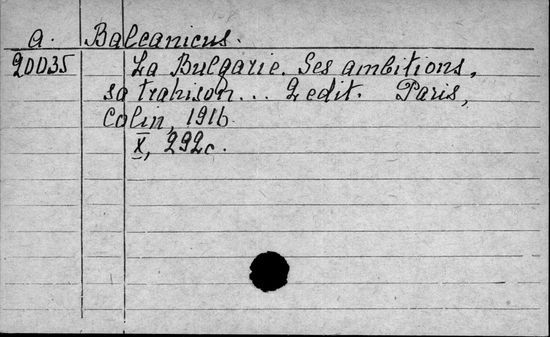 a. Balcanicus.
20035 La Bulgarie. Ses ambitions,
sa trahison... 2 edit. Paris,
Colin, 1916.
X, 292c.